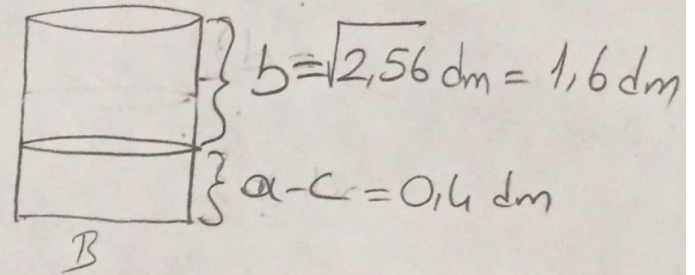 b=√2,56 dm = 1,6 dm
a-c = 0,4 dm
B